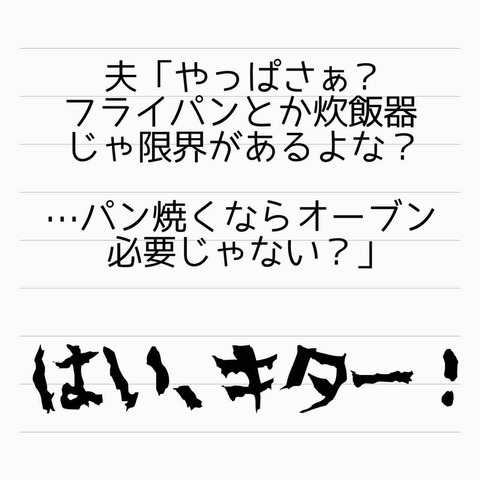 夫「やっぱさぁ？
フライパンとか炊飯器
じゃ限界があるよな？
…パン焼くならオーブン
必要じゃない？」
はい、キター！